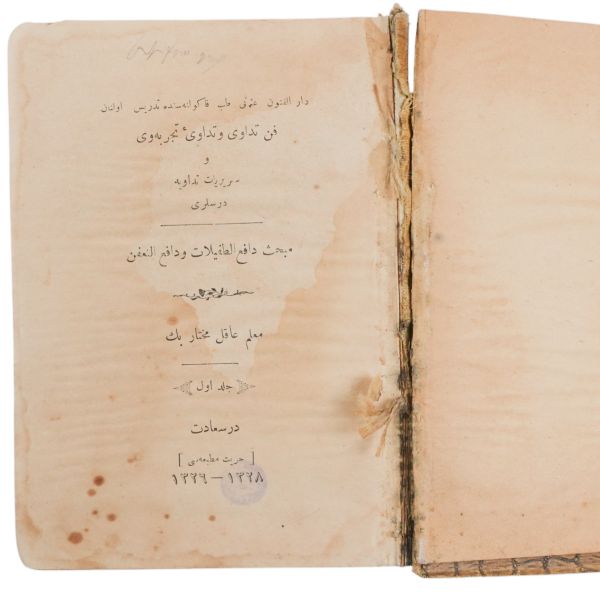 دار الفنون عثمانی طب فاكولته‌سنده تدریس اولنان
فن تداوی و تداویٔ تجربه‌وی
و
سریریات تداویه
درسلری
مبحث دافع الطفیلات ودافع التعفن
معلم عاقل مختار بك
جلد اول
درسعادت
[ حریت مطبعه‌سی ]
١٣٢٦ — ١٣٢٨